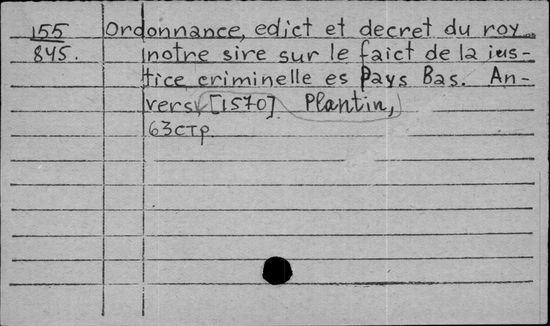 155 Ordonnance, edict et decret du roy
845. notre sire sur le faict de la ius-
tice criminelle es Pays Bas. An-
vers, [1570] Plantin,
63стр.